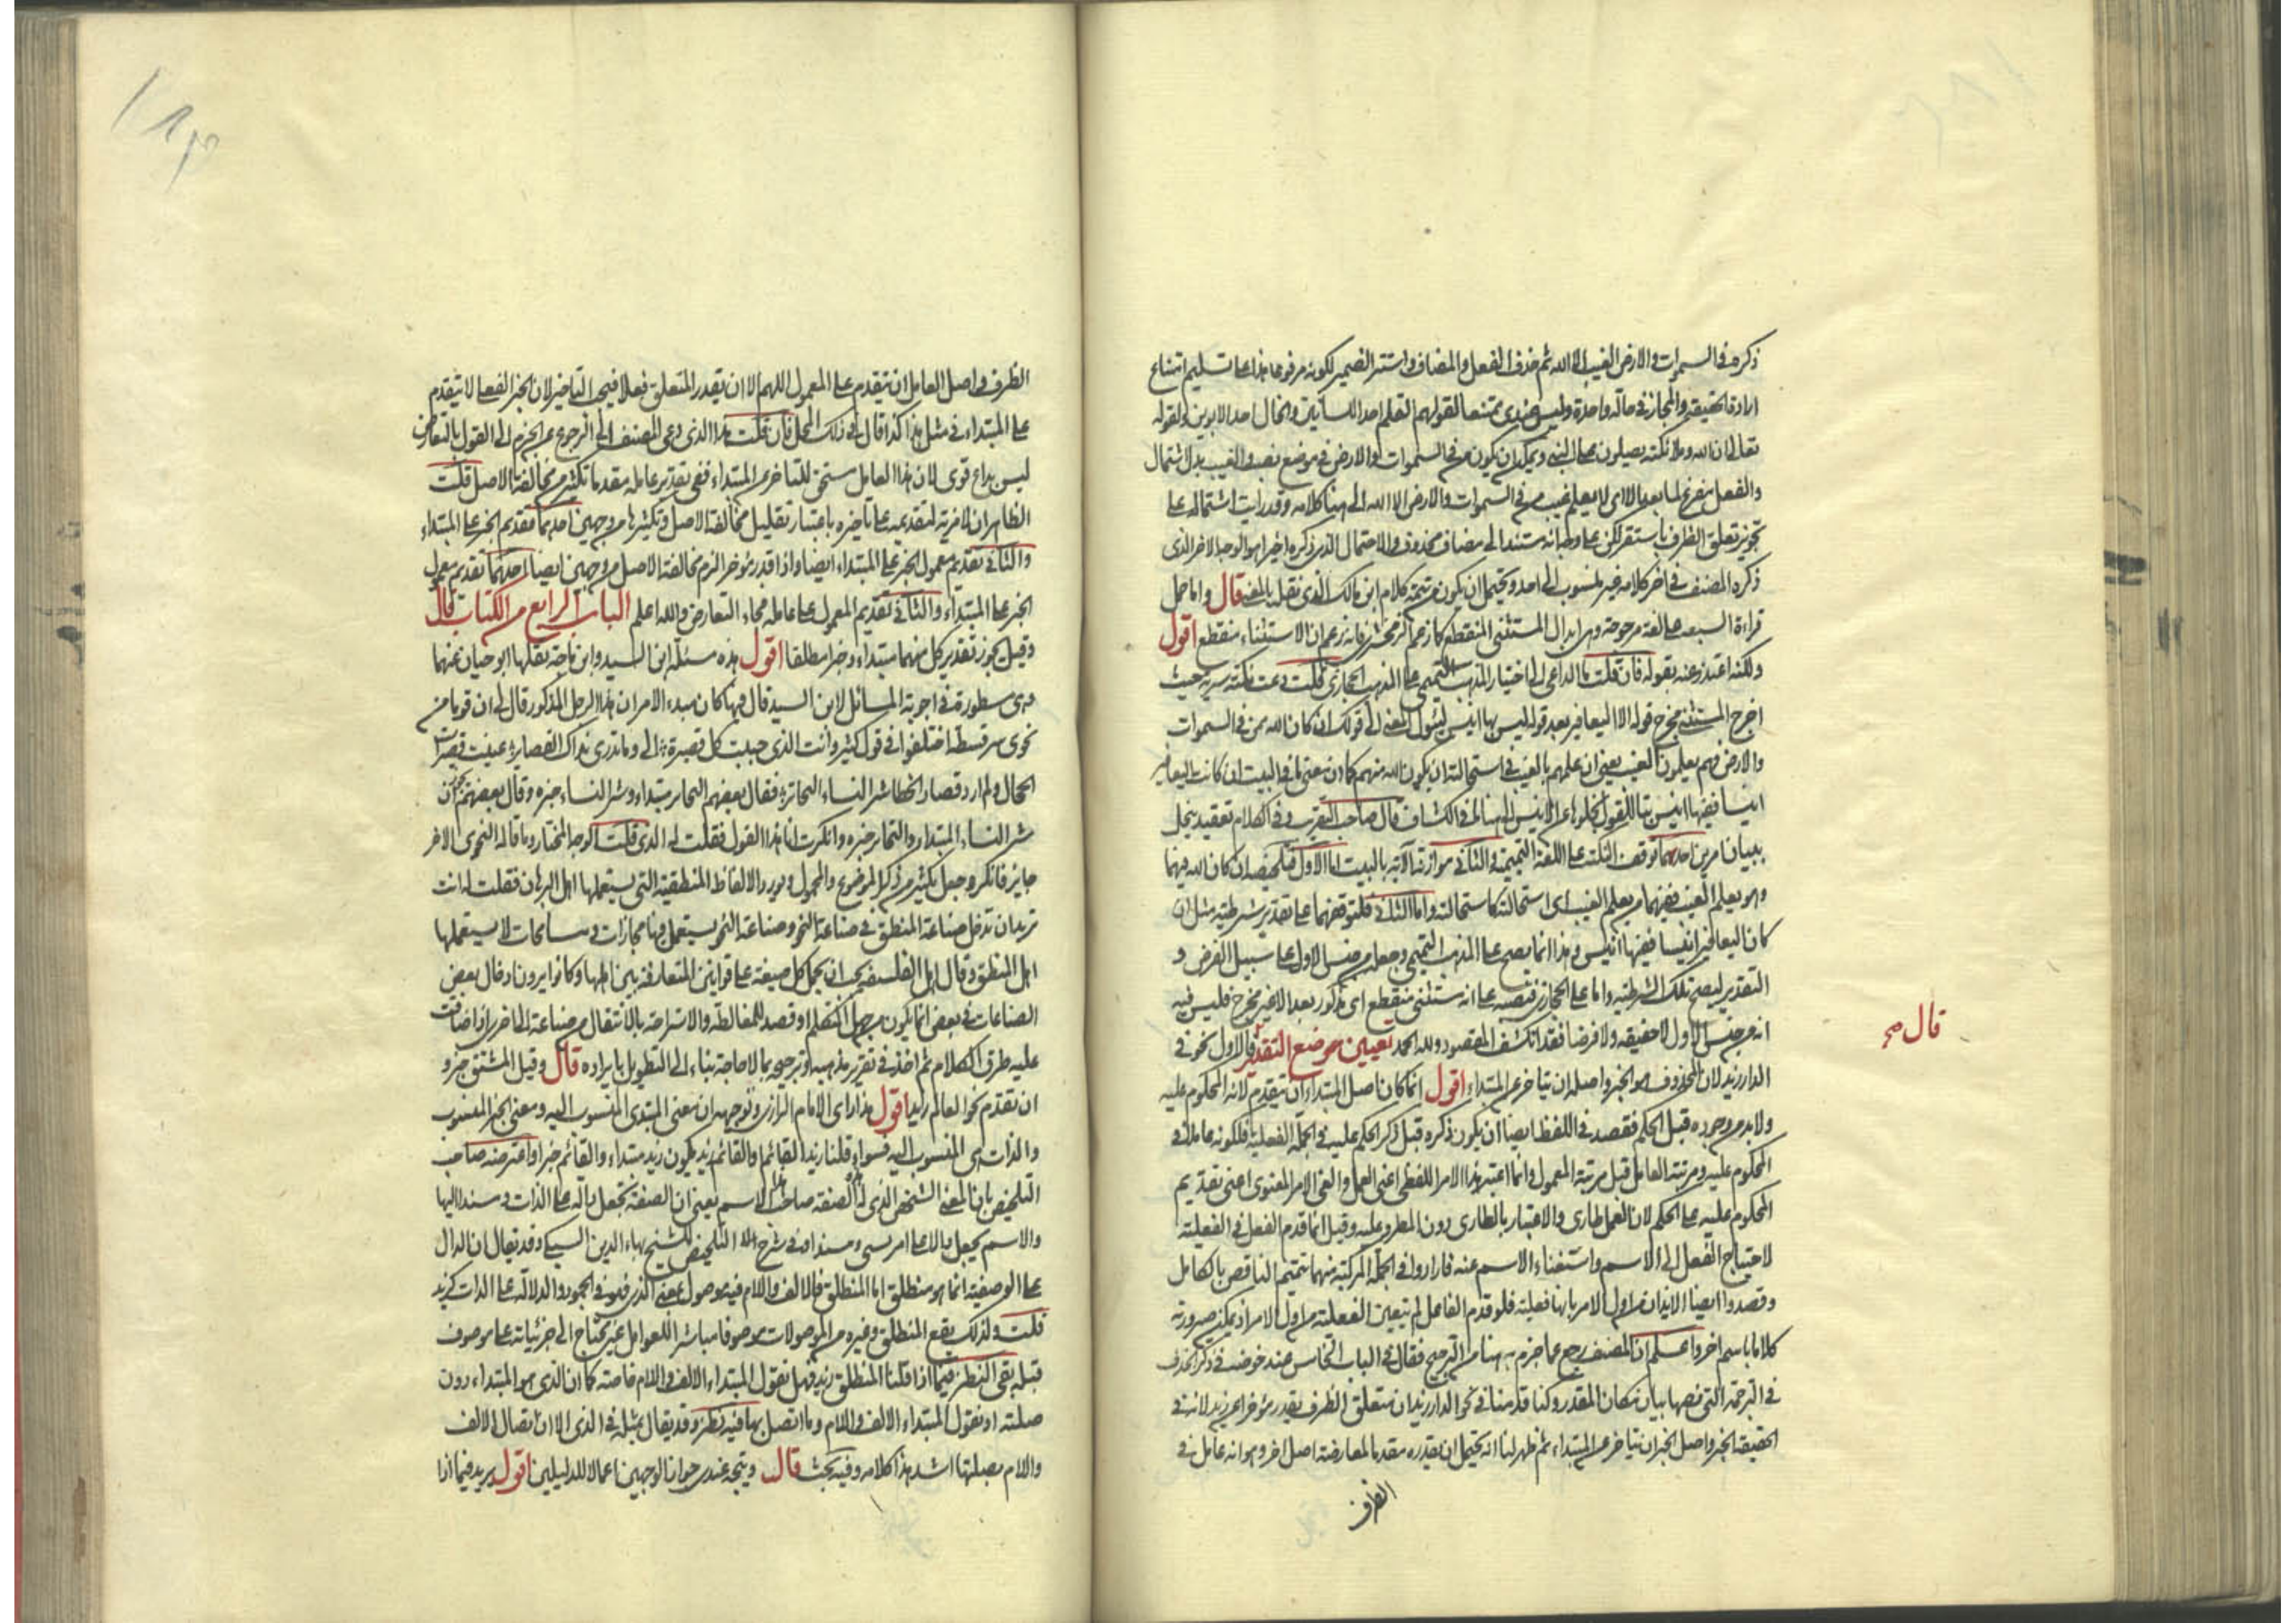 ذكره في السموات والارض الغيب الا الله ثم حذف الفعل والمضاف واستتر الضمير لكونه مرفوعا هذا على تسليم امتناع
ارادة الحقيقة والمجاز في حالة واحدة وليس عندي ممتنعا لقولهم القلم احد اللسانين والخال احد الابوين ولقوله
تعالى ان الله وملائكته يصلون على النبي ويمكن ان يكون من في السموات والارض في موضع نصب والغيب بدل اشتمال
والفعل مفرغ لما بعد الا اي لا يعلم غيب من في السموات والارض الا الله الى هنا كلامه وقد رايت اشتماله على
تجويز تعلق الظرف باستقر لكن على وجه انه مسند الى مضاف محذوف والاحتمال الذي ذكره اخيرا هو الوجه الاخر الذي
ذكره المصنف في اخر كلامه غير منسوب الى احد ويحتمل ان يكون من تتمة كلام ابن مالك الذي نقله بالمعنى قال واما حمل
قراءة السبعة على لغة مرجوحة وهي ابدال المستثنى المنقطع كما زعم الزمخشري فانه زعم ان الاستثناء منقطع اقول
ولكنه اعتذر عنه بقوله فان قلت ما الداعي الى اختيار المذهب التميمي على المذهب الحجازي قلت دعت نكتة سرية حيث
اخرج المستثنى مخرج قوله الا اليعافير بعد قوله ليس بها انيس ليئول المعنى الى قولك ان كان الله ممن في السموات
والارض فهم يعلمون الغيب يعني ان علمهم بالغيب في استحالته ان يكون الله منهم كما ان معنى ما في البيت ان كانت اليعافير
انيسا ففيها انيس بتا للقول بخلوها عن الانيس الى هنا لفظ الكشاف قال صاحب التقريب وفي الكلام تعقيد ينحل
ببيان امرين احدهما توقف النكتة على اللغة التميمية والثاني موازنة الاية بالبيت اما الاول فتلخيصه ان كان الله فيهما
وهو يعلم الغيب ففيهما من يعلم الغيب اي استحالته كاستحالته واما الثاني فلتوقفهما على تقدير شرطية مثل ان
كان اليعافير انيسا ففيها انيس وهذا انما يصح على المذهب التميمي وجعله من جنس الاول على سبيل الفرض و
التقدير ليصح تلك الشرطية واما على الحجازي فنصبه على انه مستثنى منقطع اي مذكور بعد الا غير مخرج فليس فيه
انه من جنس الاول لا حقيقة ولا فرضا فقد انكشف المقصود ولله الحمد تعيين موضع التقدير فالاول نحو في
الدار زيد لان المحذوف هو الخبر واصله ان يتاخر عن المبتداء اقول انما كان اصل المبتداء ان يتقدم لانه المحكوم عليه
ولا بد من وجوده قبل الحكم فقصد في اللفظ ايضا ان يكون ذكره قبل ذكر الحكم عليه في الجملة الفعلية فلكونه عاملا في
المحكوم عليه ومرتبة العامل قبل مرتبة المعمول وانما اعتبر هذا الامر اللفظي اعني العمل والغي الامر المعنوي اعني تقديم
المحكوم عليه على الحكم لان العمل طارى والاعتبار بالطارى دون المطرو عليه وقيل انما قدم الفعل في الفعلية
لاحتياج الفعل الى الاسم واستغناء الاسم عنه فارادوا في الجملة المركبة منهما تتميم الناقص بالكامل
وقصدوا ايضا الايذان من اول الامر بانها فعلية فلو قدم الفاعل لم يتعين الفعلية من اول الامر اذ يمكن صيرورته
كلاما باسم اخر واعلم ان المصنف رجع عما جزم به هنا من الترجيح فقال في الباب الخامس عند خوضه في ذكر الحذف
في الترجمة التي نصها بيان مكان المقدر وكنا قدمنا في نحو في الدار زيد ان متعلق الظرف يقدر مؤخرا عن زيد لانه في
الحقيقة الخبر واصل الخبر ان يتاخر عن المبتداء ثم ظهر لنا انه يحتمل ان يقدره مقدما لمعارضة اصل اخر وهو انه عامل في
الظرف
قال صح
الظرف واصل العامل ان يتقدم على المعمول اللهم الا ان يقدر المتعلق فعلا فيجب التاخير لان الخبر الفعلي لا يتقدم
على المبتداء في مثل هذا كذا قال في ذلك المحل فان قلت هذا الذي دعى المصنف الى الرجوع عن الجزم الى القول بالتعارض
ليس بداع قوى لان هذا العامل مستحق للتاخر عن المبتداء ففي تقدير عامله مقدما تكثير من مخالفة الاصل قلت
الظاهر ان لا مزية لتقديمه على تاخيره باعتبار تقليل مخالفة الاصل وتكثيرها من وجهين احدهما تقديم الخبر على المبتداء
والثاني تقديم معمول الخبر على المبتداء ايضا واذا قدر مؤخرا لزم مخالفة الاصل من وجهين ايضا احدهما تقديم معمول
الخبر على المبتداء والثاني تقديم المعمول على عامله فجاء التعارض والله اعلم الباب الرابع من الكتاب قال
وقيل يجوز تقدير كل منهما مبتداء وخبرا مطلقا اقول هذه مسئلة ابن السيد وابن باجة نقلها ابو حيان عنهما
وهي مسطورة في اجوبة المسائل لابن السيد قال فيها كان مبدء الامر ان هذا الرجل المذكور قال لي ان قوما من
نحوى سرقسطة اختلفوا في قول كثير وانت الذي حببت كل قصيرة الي وما تدري بذاك القصاير عنيت قصيرات
الحجال ولم ارد قصار الخطا شر النساء البحاتر فقال بعضهم البحاتر مبتداء وشر النساء خبره وقال بعضهم يجوز ان
شر النساء المبتداء والبحاتر خبره وانكرت انا هذا القول فقلت له الذي قلت الوجه المختار وما قاله النحوى الاخر
جايز فانكر وجعل يكثر من ذكر الموضوع والمحمول ويورد الالفاظ المنطقية التي يستعملها اهل البرهان فقلت له انت
تريد ان تدخل صناعة المنطق في صناعة النحو وصناعة النحو يستعمل فيها مجازات ومسامحات لا يستعملها
اهل المنطق وقال اهل الفلسفة يجب ان يحمل كل صيغة على قوانين المتعارفة بين اهلها وكانوا يرون ادخال بعض
الصناعات في بعض انما يكون من جهل المتكلم او قصد للمغالطة والاستراحة بالانتقال من صناعة الى اخرى اذا ضاقت
عليه طرق الكلام ثم اخذ في تقرير مذهبه وترجيحه بما لا حاجة بنا الى التطويل بايراده قال وقيل المشتق خبر و
ان تقدم نحو القائم زيد اقول هذا راى الامام الرازي وتوجيهه ان معنى المبتدى المنسوب اليه ومعنى الخبر المنسوب
والذات هي المنسوب اليه فسواء قلنا زيد القائم او القائم زيد يكون زيد مبتداء والقائم خبرا واعترضه صاحب
التلخيص بان المعنى الشخص الذي له الصفة صاحب هذا الاسم يعني ان الصفة تجعل دالة على الذات ومسندا اليها
والاسم يجعل دالا على امر نسبي ومسندا وفي شرح التلخيص للشيخ بهاء الدين السبكي وقد يقال ان الدال
على الوصفية انما هو منطلق اما المنطلق فالالف واللام فيه موصول بمعنى الذي فهو في الجمود والدلالة على الذات كزيد
قلت ولذلك يقع المنطلق وغيره من الموصولات موصوفا مباشر اللعوامل غير محتاج الى جريانه على موصوف
قبله بقى النظر فيما اذا قلنا المنطلق زيد فهل نقول المبتداء الالف واللام خاصة كما ان الذي هو المبتداء دون
صلته او نقول المبتداء الالف واللام وما اتصل بها فيه نظر وقد يقال بمثله في الذي الا ان اتصال الالف
والام بصلتها اشد هذا كلامه وفيه بحث قال ويتجه عندي جواز الوجهين اعمالا للدليلين اقول يريد فيما اذا